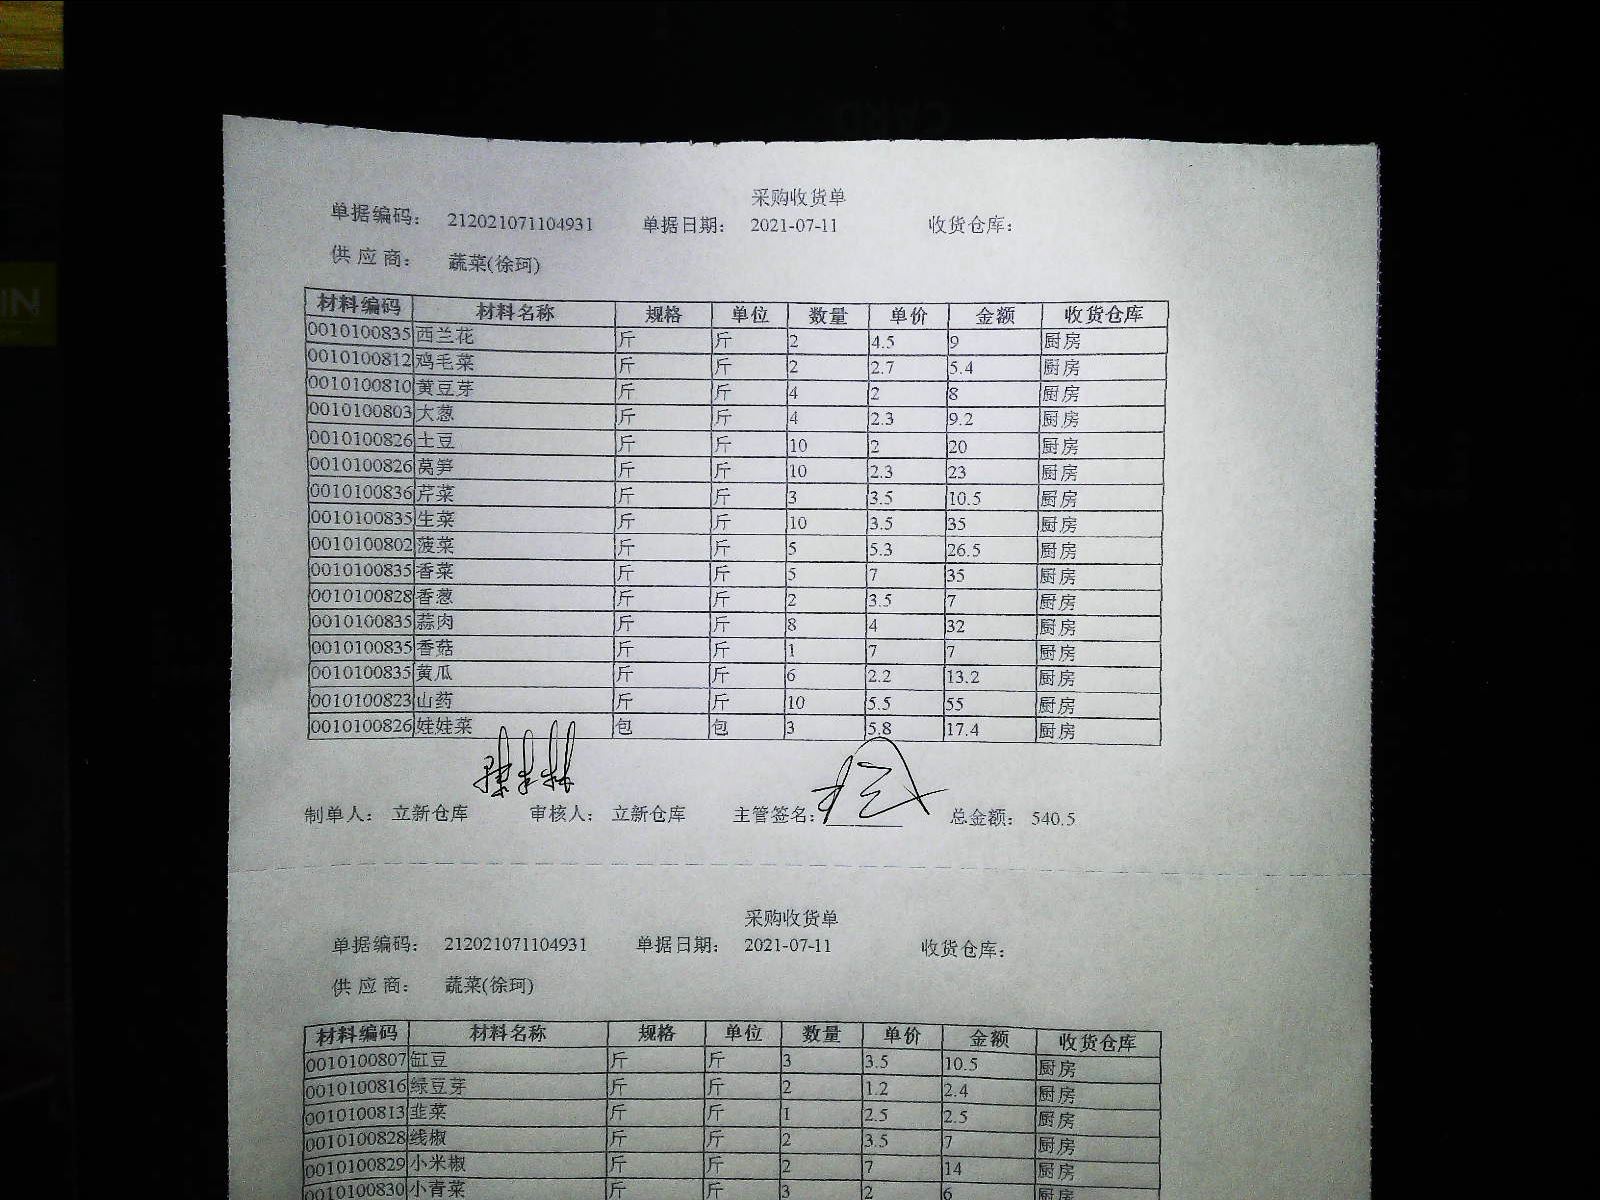 CARD
IN
采购收货单
单据编码： 212021071104931 单据日期： 2021-07-11 收货仓库：
供 应 商： 蔬菜(徐珂)
材料编码 材料名称 规格 单位 数量 单价 金额 收货仓库
0010100835 西兰花 斤 斤 2 4.5 9 厨房
0010100812 鸡毛菜 斤 斤 2 2.7 5.4 厨房
0010100810 黄豆芽 斤 斤 4 2 8 厨房
0010100803 大葱 斤 斤 4 2.3 9.2 厨房
0010100826 土豆 斤 斤 10 2 20 厨房
0010100826 莴笋 斤 斤 10 2.3 23 厨房
0010100836 芹菜 斤 斤 3 3.5 10.5 厨房
0010100835 生菜 斤 斤 10 3.5 35 厨房
0010100802 菠菜 斤 斤 5 5.3 26.5 厨房
0010100835 香菜 斤 斤 5 7 35 厨房
0010100828 香葱 斤 斤 2 3.5 7 厨房
0010100835 蒜肉 斤 斤 8 4 32 厨房
0010100835 香菇 斤 斤 1 7 7 厨房
0010100835 黄瓜 斤 斤 6 2.2 13.2 厨房
0010100823 山药 斤 斤 10 5.5 55 厨房
0010100826 娃娃菜 包 包 3 5.8 17.4 厨房
制单人： 立新仓库 审核人： 立新仓库 主管签名： 总金额： 540.5
采购收货单
单据编码： 212021071104931 单据日期： 2021-07-11 收货仓库：
供 应 商： 蔬菜(徐珂)
材料编码 材料名称 规格 单位 数量 单价 金额 收货仓库
0010100807 缸豆 斤 斤 3 3.5 10.5 厨房
0010100816 绿豆芽 斤 斤 2 1.2 2.4 厨房
0010100813 韭菜 斤 斤 1 2.5 2.5 厨房
0010100828 线椒 斤 斤 2 3.5 7 厨房
0010100829 小米椒 斤 斤 2 7 14 厨房
0010100830 小青菜 斤 斤 3 2 6 厨房